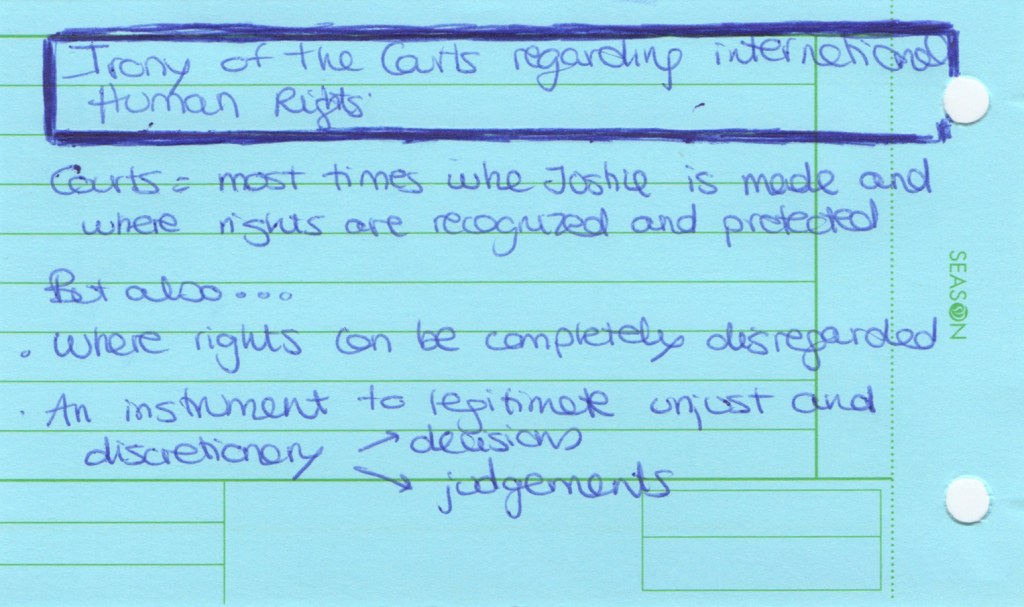 Irony of the Courts regarding international
Human Rights.
Courts = most times whe Jostice is made and
where rights are recognized and protected
But also...
. where rights can be completely disregarded
. An instrument to legitimate unjust and
discretionary → decisions
→ judgements
SEASON